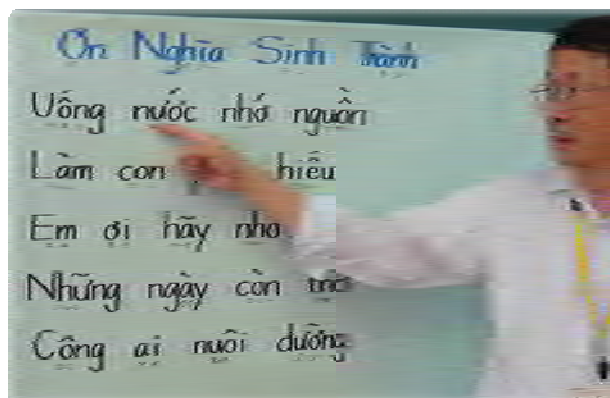 Ơn Nghĩa Sinh Thành
Uống nước nhớ nguồn
Làm con hiếu
Em ơi hãy
Những ngày còn
Công ai nuôi dưỡng